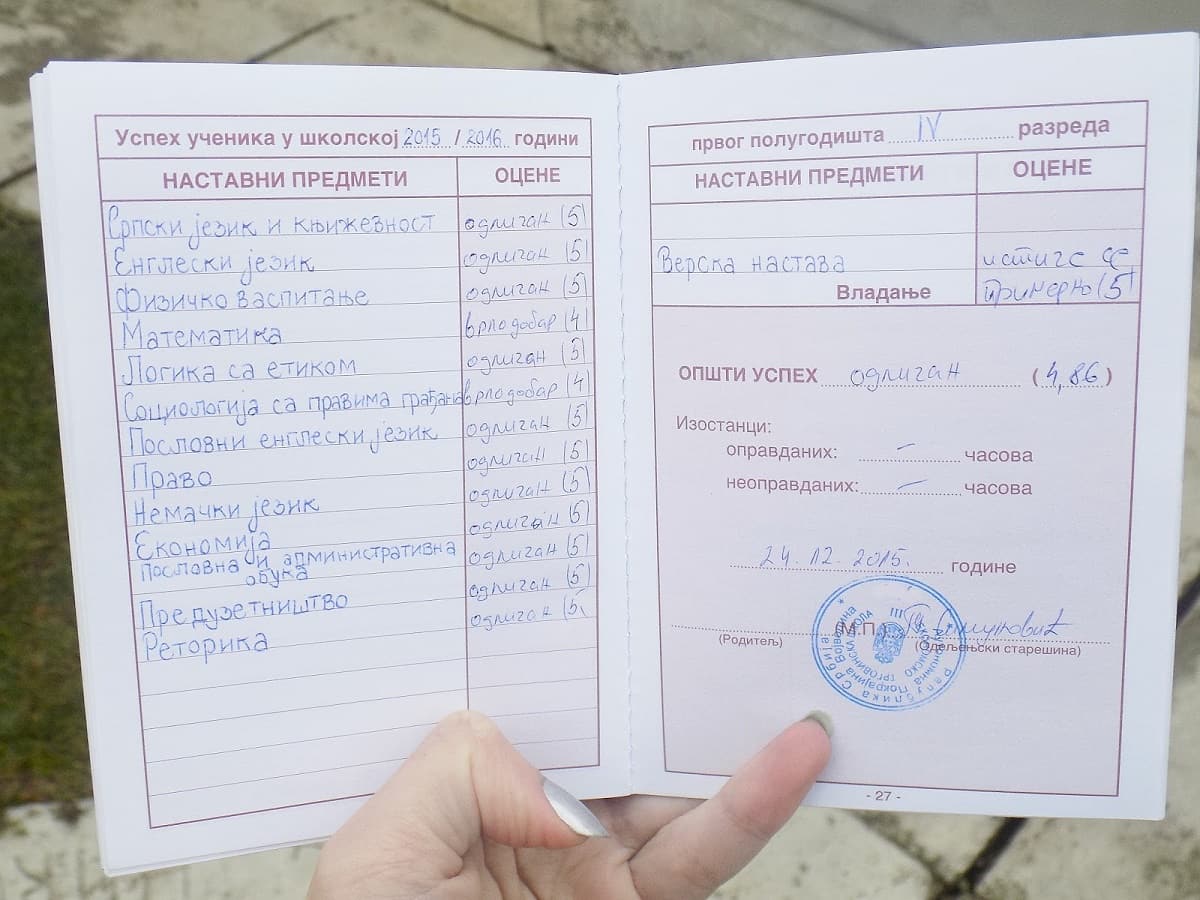 Успех ученика у школској 2015 / 2016 години
НАСТАВНИ ПРЕДМЕТИ ОЦЕНЕ
Српски језик и књижевност одличан (5)
Енглески језик одличан (5)
Физичко васпитање одличан (5)
Математика врло добар (4)
Логика са етиком одличан (5)
Социологија са правима грађана врло добар (4)
Пословни енглески језик одличан (5)
Право одличан (5)
Немачки језик одличан (5)
Економија одличан (5)
Пословна и административна обука одличан (5)
Предузетништво одличан (5)
Реторика одличан (5)
првог полугодишта IV разреда
НАСТАВНИ ПРЕДМЕТИ ОЦЕНЕ
Верска настава истиче се
Владање примерно (5)
ОПШТИ УСПЕХ одличан (4,86)
Изостанци:
оправданих: – часова
неоправданих: – часова
24.12.2015. године
(М.П.)
(Родитељ) (Одељењски старешина)
Република Србија
Аутономна Покрајина Војводина
- 27 -